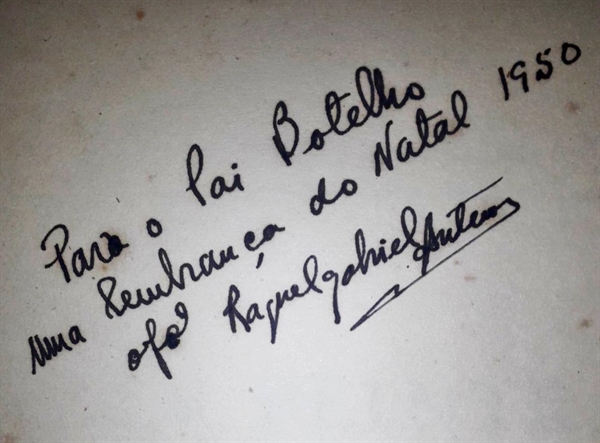 Para o Pai Botelho
uma lembrança do Natal 1950
ofª Raquel gabriel Antunes